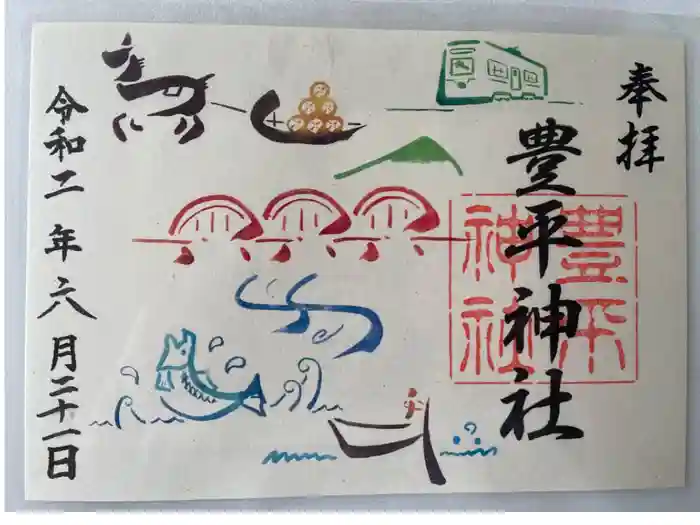 奉拝
豊平神社
豊平神社
令和二年六月二十一日